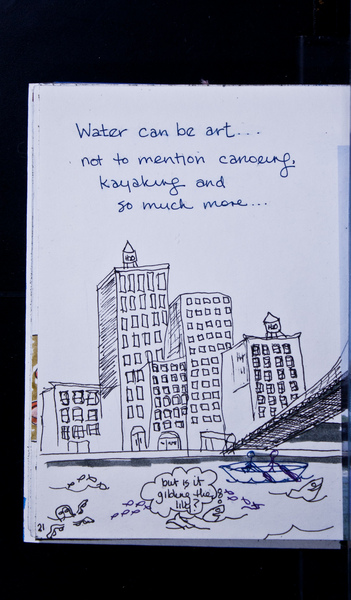 Water can be art...
not to mention canoeing,
kayaking and
so much more...
H2O
but is it
gilding the
lily?
21